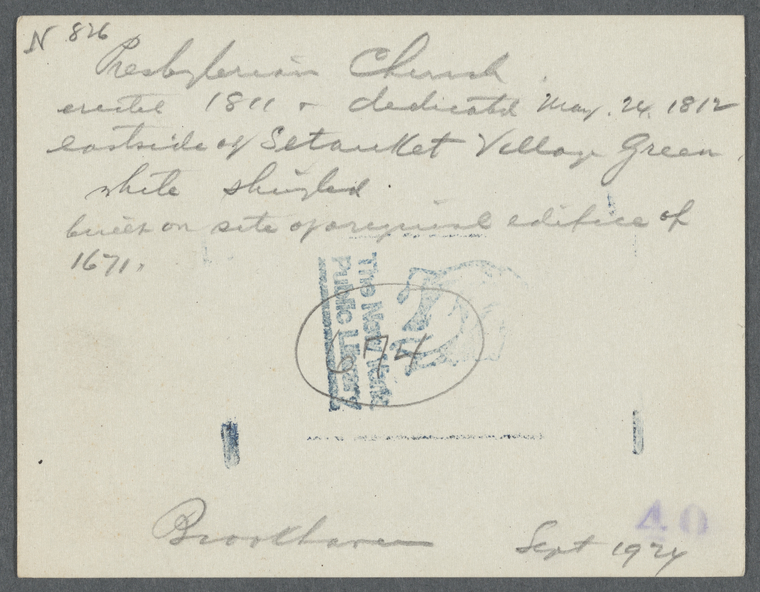 N 826
Presbyterian Church
erected 1811 + dedicated May. 24. 1812
eastside of Setauket Village Green,
white shingled
built on site of original edifice of
1671.
The New York
Public Library
674
40
Brookhaven
Sept 1924